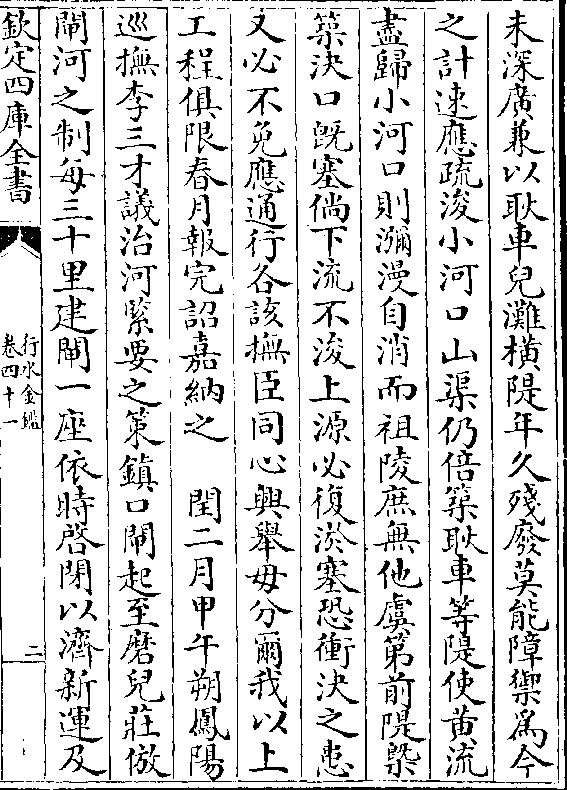 未深廣兼以耿車兒灘橫隄年久殘廢莫能障禦爲今
之計速應疏浚小河口山渠仍倍築耿車等隄使黄流
盡歸小河口則瀰漫自消而祖陵庶無他虞第前隄槩
築決口旣塞倘下流不浚上源必復淤塞恐衝決之患
又必不免應通行各該撫臣同心興舉毋分爾我以上
工程俱限春月報完詔嘉納之　閏二月甲午朔鳳陽
巡撫李三才議治河緊要之策鎮口閘起至磨兒莊倣
閘河之制每三十里建閘一座依時啓閉以濟新運及
欽定四庫全書
行水金鑑
卷四十一
二